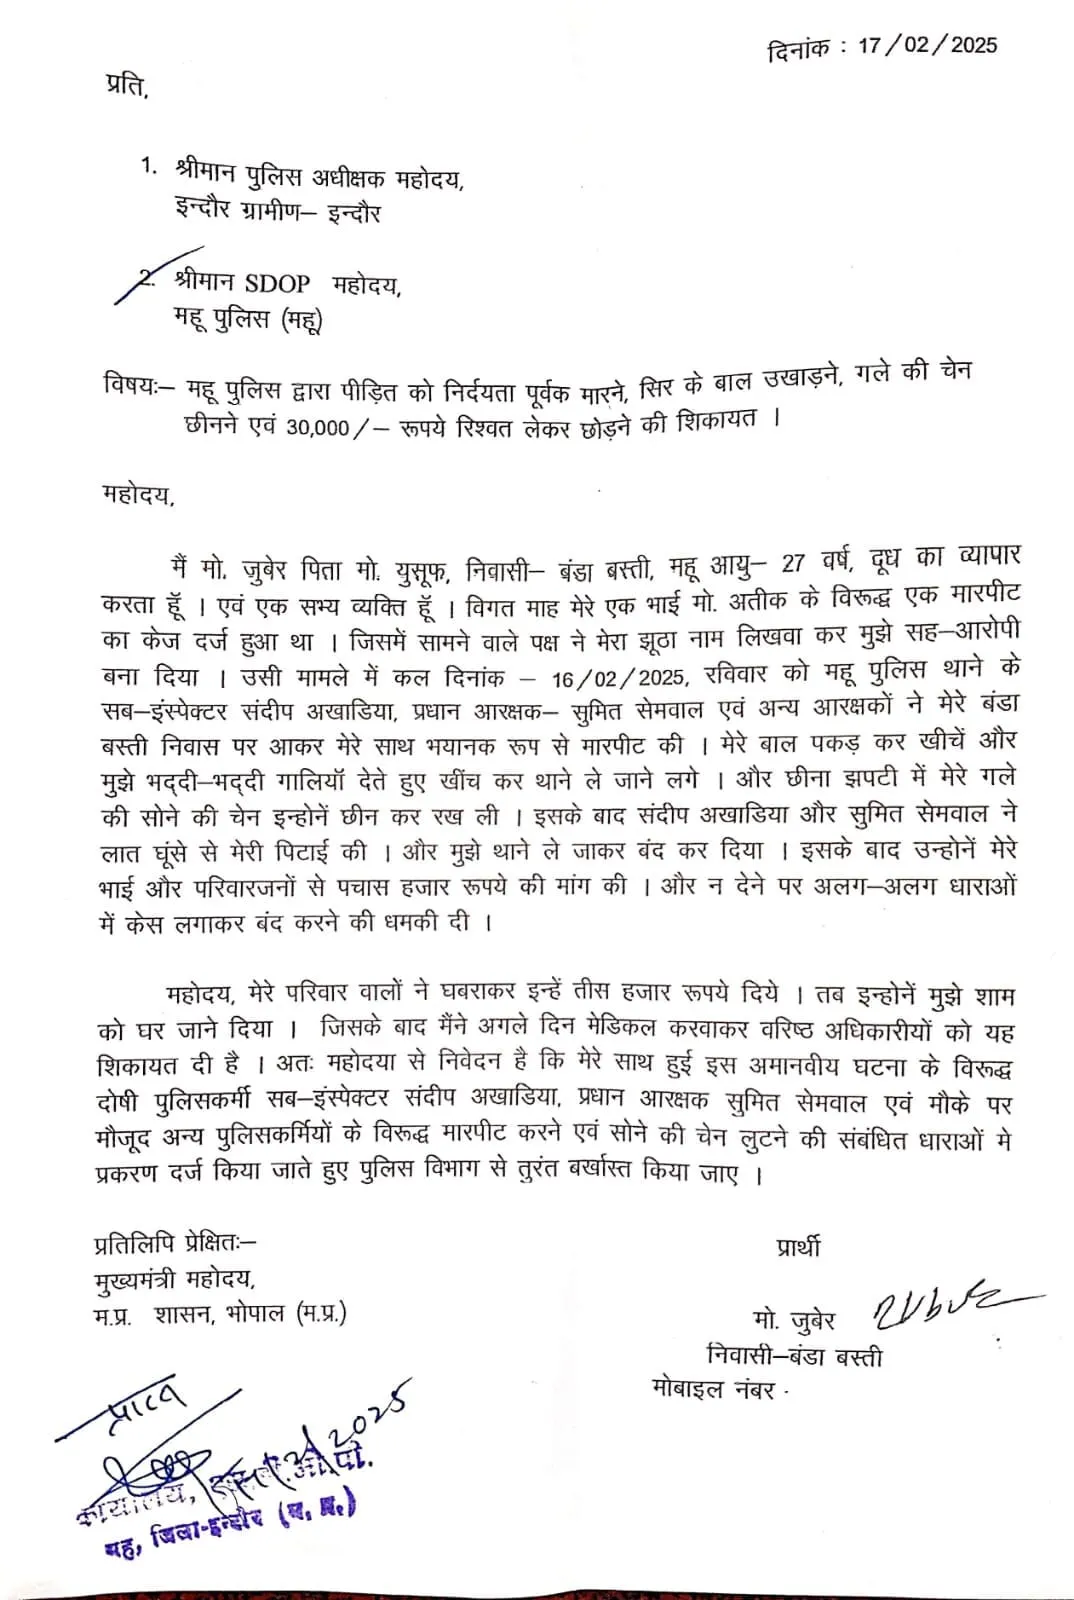 दिनांक : 17/02/2025
प्रति,
1. श्रीमान पुलिस अधीक्षक महोदय,
इन्दौर ग्रामीण– इन्दौर
2. श्रीमान SDOP महोदय,
महू पुलिस (महू)
विषयः– महू पुलिस द्वारा पीड़ित को निर्दयता पूर्वक मारने, सिर के बाल उखाड़ने, गले की चेन
छीनने एवं 30,000/– रूपये रिश्वत लेकर छोड़ने की शिकायत ।
महोदय,
मैं मो. जुबेर पिता मो. युसूफ, निवासी– बंडा बस्ती, महू आयु– 27 वर्ष, दूध का व्यापार
करता हूॅ । एवं एक सभ्य व्यक्ति हूॅ । विगत माह मेरे एक भाई मो. अतीक के विरूद्ध एक मारपीट
का केज दर्ज हुआ था । जिसमें सामने वाले पक्ष ने मेरा झूठा नाम लिखवा कर मुझे सह–आरोपी
बना दिया । उसी मामले में कल दिनांक – 16/02/2025, रविवार को महू पुलिस थाने के
सब–इंस्पेक्टर संदीप अखाडिया, प्रधान आरक्षक– सुमित सेमवाल एवं अन्य आरक्षकों ने मेरे बंडा
बस्ती निवास पर आकर मेरे साथ भयानक रूप से मारपीट की । मेरे बाल पकड़ कर खीचें और
मुझे भद्दी–भद्दी गालियॉ देते हुए खींच कर थाने ले जाने लगे । और छीना झपटी में मेरे गले
की सोने की चेन इन्होनें छीन कर रख ली । इसके बाद संदीप अखाडिया और सुमित सेमवाल ने
लात घूंसे से मेरी पिटाई की । और मुझे थाने ले जाकर बंद कर दिया । इसके बाद उन्होनें मेरे
भाई और परिवारजनों से पचास हजार रूपये की मांग की । और न देने पर अलग–अलग धाराओं
में केस लगाकर बंद करने की धमकी दी ।
महोदय, मेरे परिवार वालों ने घबराकर इन्हें तीस हजार रूपये दिये । तब इन्होनें मुझे शाम
को घर जाने दिया । जिसके बाद मैंने अगले दिन मेडिकल करवाकर वरिष्ठ अधिकारीयों को यह
शिकायत दी है । अतः महोदया से निवेदन है कि मेरे साथ हुई इस अमानवीय घटना के विरूद्ध
दोषी पुलिसकर्मी सब–इंस्पेक्टर संदीप अखाडिया, प्रधान आरक्षक सुमित सेमवाल एवं मौके पर
मौजूद अन्य पुलिसकर्मियों के विरूद्ध मारपीट करने एवं सोने की चेन लुटने की संबंधित धाराओं मे
प्रकरण दर्ज किया जाते हुए पुलिस विभाग से तुरंत बर्खास्त किया जाए ।
प्रतिलिपि प्रेक्षितः–
मुख्यमंत्री महोदय,
म.प्र. शासन, भोपाल (म.प्र.)
प्रार्थी
मो. जुबेर
निवासी–बंडा बस्ती
मोबाइल नंबर
प्राप्त
2025
कार्यालय, एस.डी.ओ.पी.
महू, जिला-इन्दौर (म. प्र.)